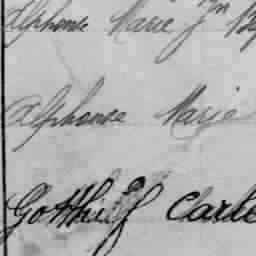 Alphonse Marie
Alphonse Marie
Gottlieb Carle